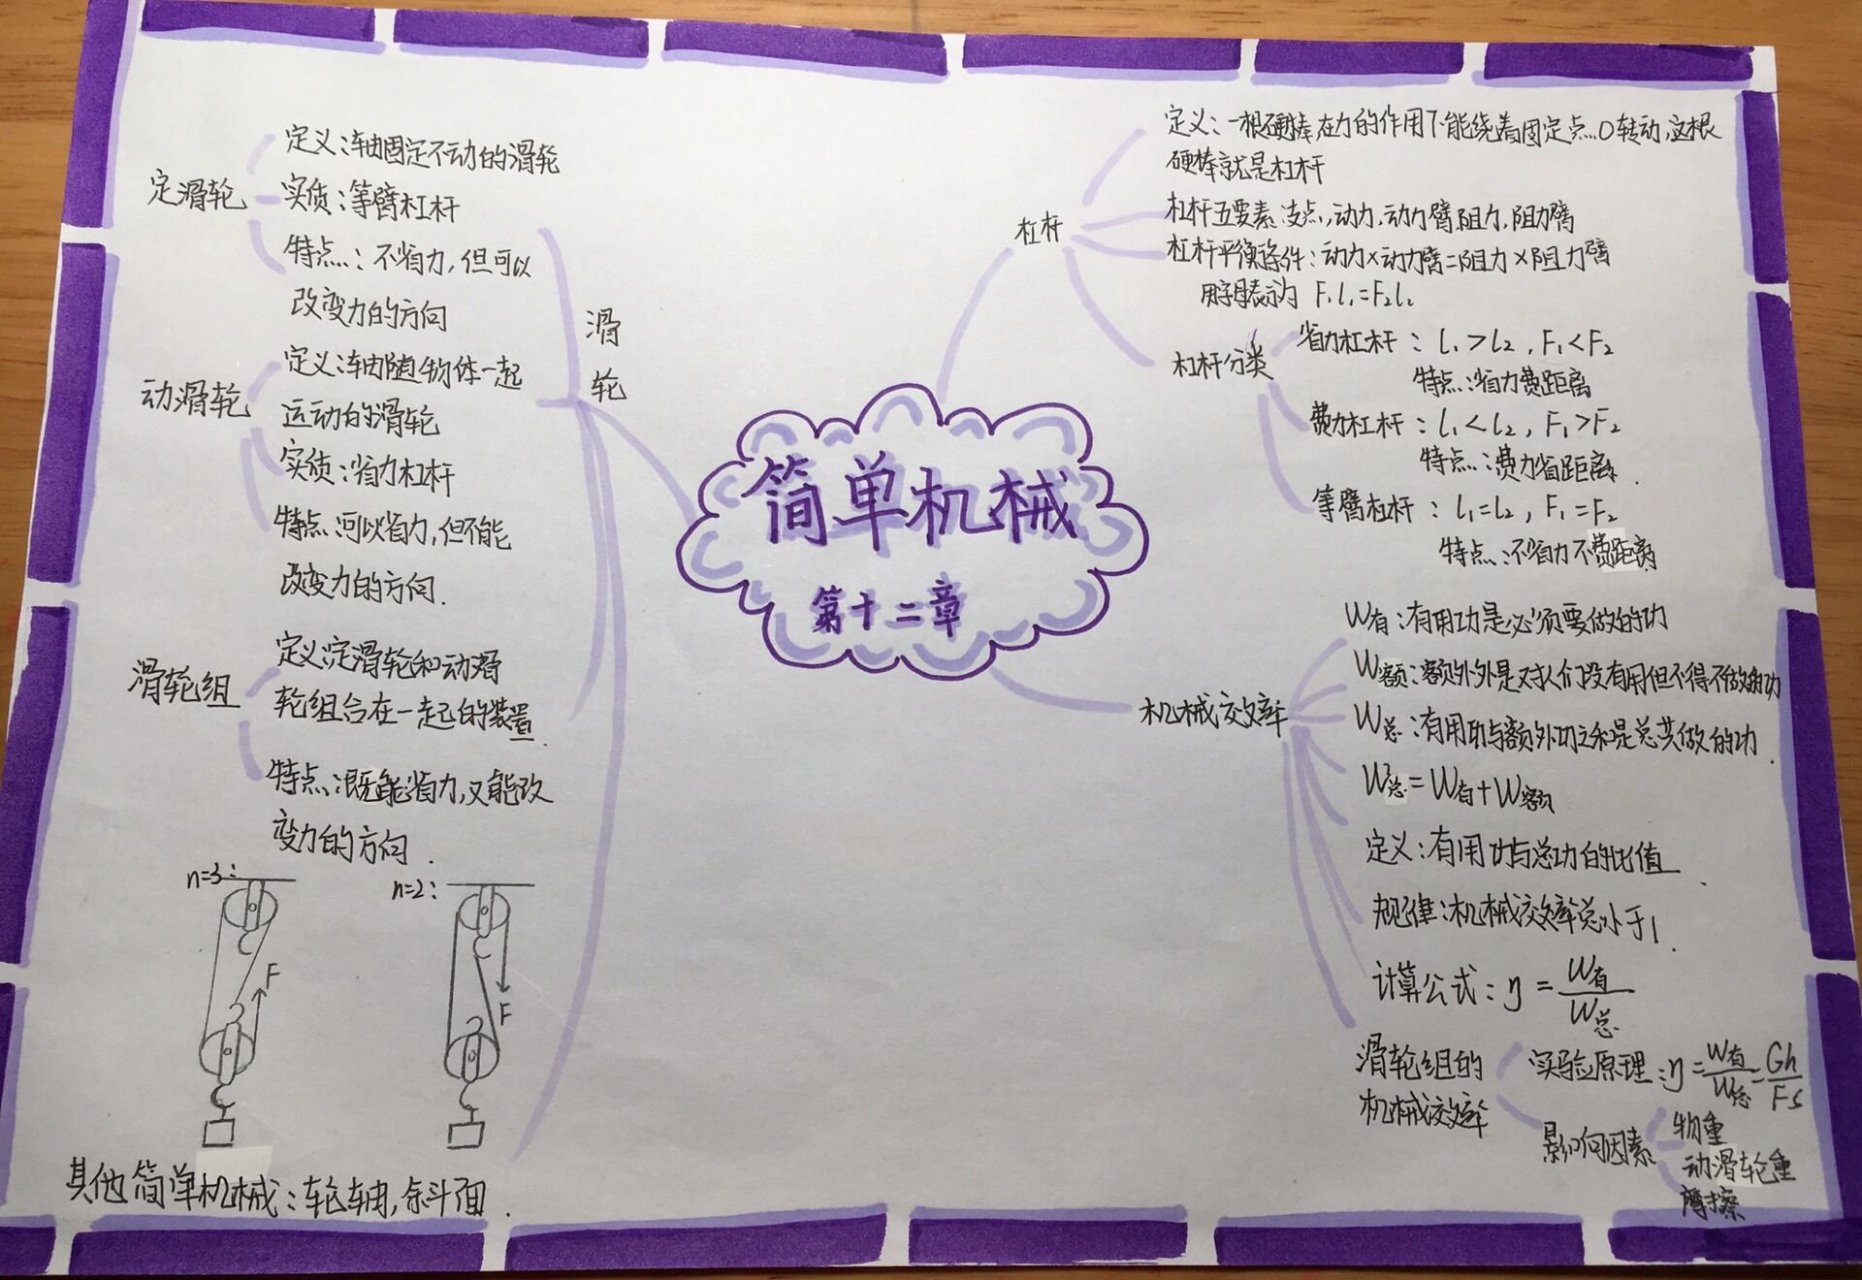 简单机械
第十二章
定滑轮
定义:轴固定不动的滑轮
实质:等臂杠杆
特点:不省力,但可以
改变力的方向
滑
轮
动滑轮
定义:轴随物体一起
运动的滑轮
实质:省力杠杆
特点:可以省力,但不能
改变力的方向.
滑轮组
定义:定滑轮和动滑
轮组合在一起的装置.
特点:既能省力,又能改
变力的方向.
n=3:
F
n=2:
F
其他简单机械:轮轴,斜面.
杠杆
定义:一根硬棒在力的作用下能绕着固定点O转动,这根
硬棒就是杠杆
杠杆五要素:支点,动力,动力臂,阻力,阻力臂
杠杆平衡条件:动力×动力臂=阻力×阻力臂
用字母表示为 F₁l₁=F₂l₂
杠杆分类
省力杠杆:l₁>l₂,F₁<F₂
特点:省力费距离
费力杠杆:l₁<l₂,F₁>F₂
特点:费力省距离.
等臂杠杆:l₁=l₂,F₁=F₂
特点:不省力不费距离
机械效率
W有:有用功是必须要做的功
W额:额外外是对人们没有用但不得不做的功
W总:有用功与额外功之和是总共做的功.
W总=W有+W额
定义:有用功与总功的比值.
规律:机械效率总小于1.
计算公式:η=W有/W总
滑轮组的
机械效率
实验原理:η=W有/W总=Gh/Fs
影响因素
物重
动滑轮重
摩擦